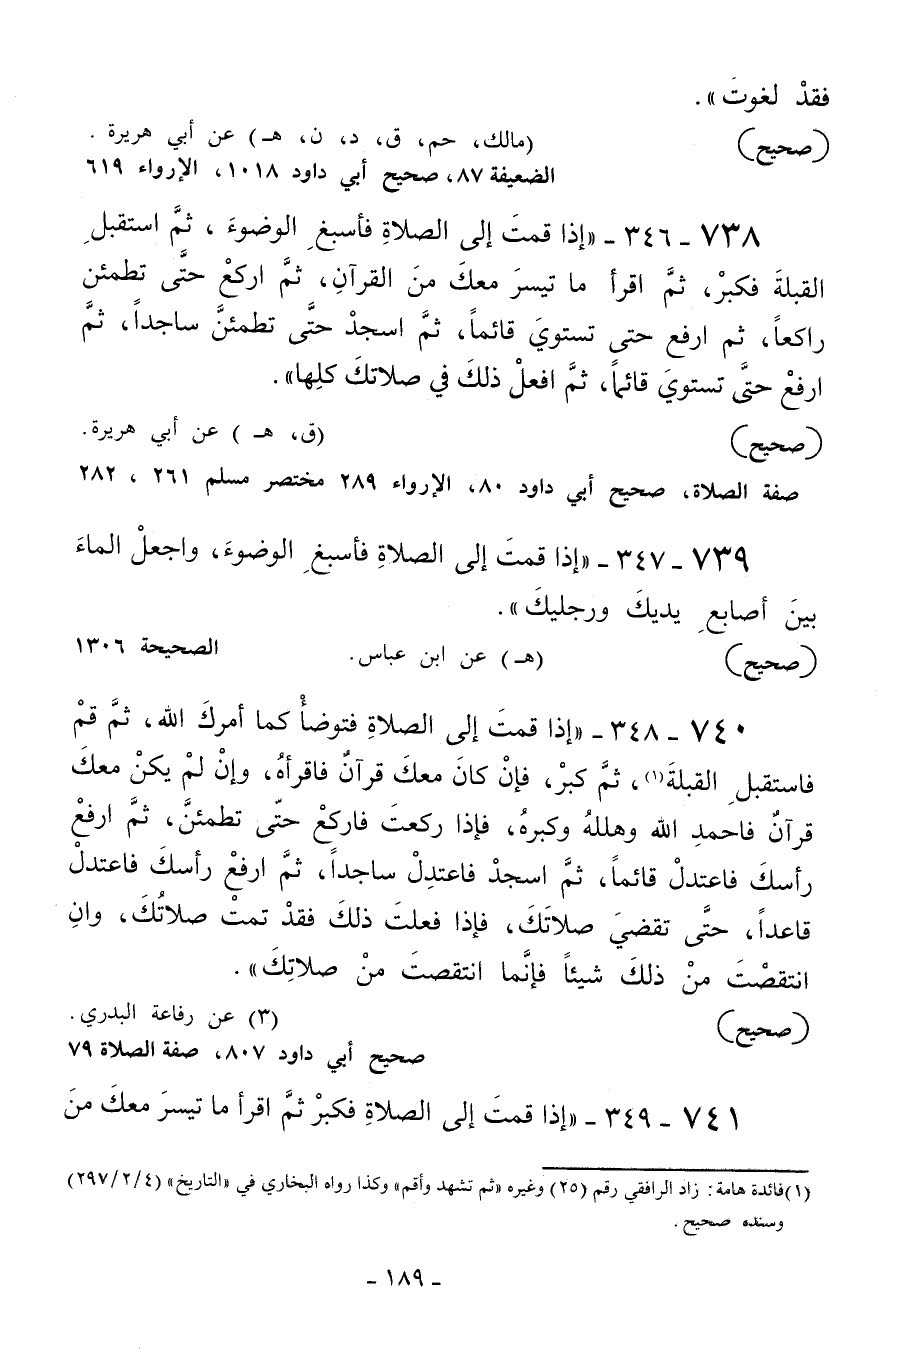 فقدْ لغوتَ» .
(صحيح) (مالك، حم، ق، د، ن، هـ) عن أبي هريرة .
الضعيفة ٨٧، صحيح أبي داود ١٠١٨، الإرواء ٦١٩
٧٣٨ ـ ٣٤٦ ـ «إذا قمتَ إلى الصلاةِ فأسبغِ الوضوءَ ، ثمَّ استقبلِ
القبلةَ فكبرْ، ثمَّ اقرأ ما تيسرَ معكَ منَ القرآنِ، ثمَّ اركعْ حتَّى تطمئن
راكعاً، ثم ارفع حتى تستويَ قائماً، ثمَّ اسجدْ حتَّى تطمئنَّ ساجداً، ثمَّ
ارفعْ حتَّى تستويَ قائما، ثمَّ افعلْ ذلكَ في صلاتكَ كلِها» .
(صحيح) (ق، هـ ) عن أبي هريرة.
صفة الصلاة، صحيح أبي داود ٨٠، الإرواء ٢٨٩ مختصر مسلم ٢٦١ ، ٢٨٢
٧٣٩ ـ ٣٤٧ ـ «إذا قمتَ إلى الصلاةِ فأسبغِ الوضوءَ، واجعلْ الماءَ
بينَ أصابعِ يديكَ ورجليكَ» .
(صحيح) (هـ) عن ابن عباس. الصحيحة ١٣٠٦
٧٤٠ ـ ٣٤٨ ـ «إذا قمتَ إلى الصلاةِ فتوضأْ كما أمركَ الله، ثمَّ قمْ
فاستقبلِ القبلةَ(١)، ثمَّ كبرْ، فإنْ كانَ معكَ قرآنٌ فاقرأهُ، وإنْ لمْ يكنْ معكَ
قرآنٌ فاحمدِ الله وهللهُ وكبرهُ، فإذا ركعتَ فاركعْ حتّى تطمئنَّ، ثمَّ ارفعْ
رأسكَ فاعتدلْ قائماً، ثمَّ اسجدْ فاعتدِلْ ساجداً، ثمَّ ارفعْ رأسكَ فاعتدلْ
قاعداً، حتَّى تقضيَ صلاتَكَ، فإذا فعلتَ ذلكَ فقدْ تمتْ صلاتُكَ، وانِ
انتقصْتَ منْ ذلكَ شيئاً فإنَّما انتقصتَ منْ صلاتِكَ» .
(صحيح) (٣) عن رفاعة البدري .
صحيح أبي داود ٨٠٧، صفة الصلاة ٧٩
٧٤١ ـ ٣٤٩ ـ «إذا قمتَ إلى الصلاةِ فكبرْ ثمَّ اقرأ ما تيسرَ معكَ منَ
(١) فائدة هامة : زاد الرافقي رقم (٢٥) وغيره «ثم تشهد وأقم» وكذا رواه البخاري في «التاريخ» (٢٩٧/٢/٤)
وسنده صحيح .
ـ ١٨٩ ـ